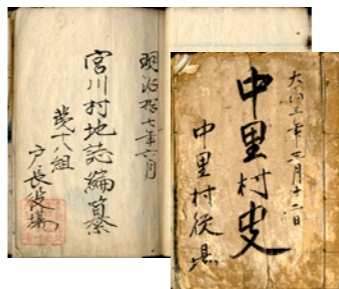 明治拾七年六月
宮川村地誌編纂
第十八組
戸長役場
大正三年三月十二日
中里村史
中里村役場